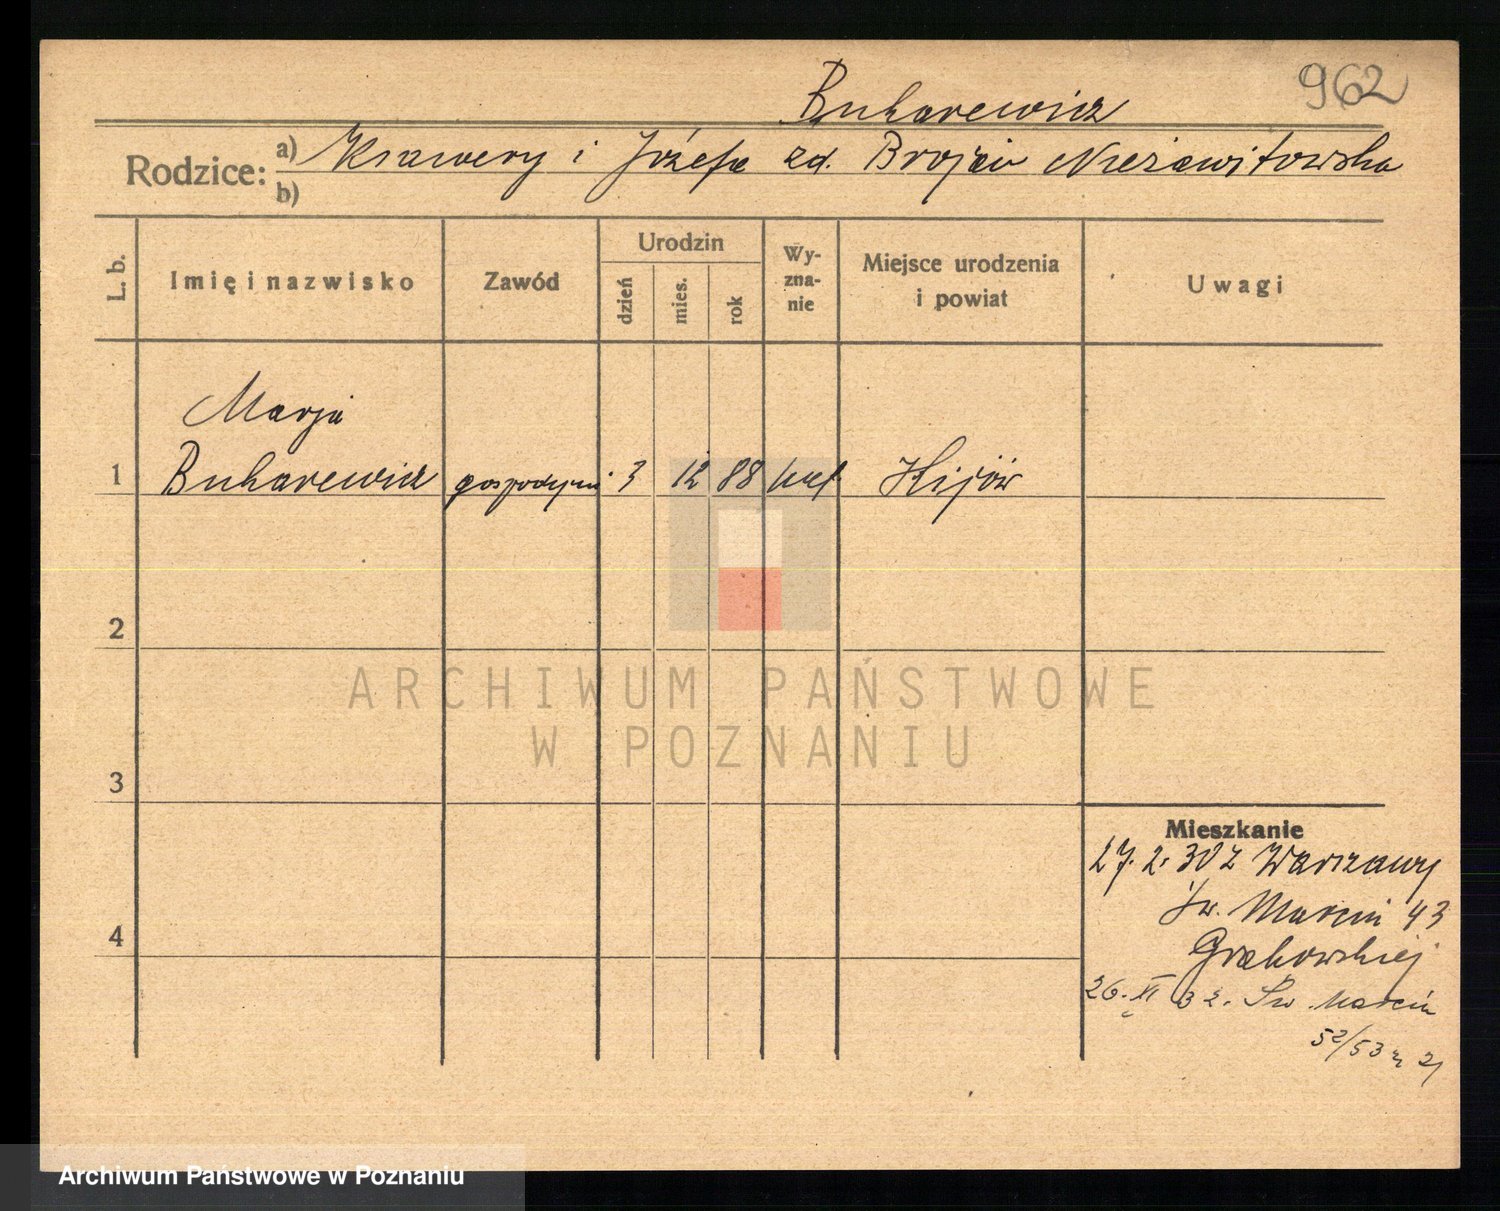 962
Bukarewicz
Rodzice: a) Ksawery i Józefa zd. Brojew Nieżawitowska
b)
L. b. Imię i nazwisko Zawód Urodzin dzień mies. rok Wyznanie Miejsce urodzenia i powiat Uwagi
Marja
1 Bukarewicz gospodyni 3 12 88 kat. Kijów
2
3
4
ARCHIWUM PAŃSTWOWE
W POZNANIU
Mieszkanie
27. 2. 30 z Warszawy
Św. Marcin 43
Grabowskiej
26. XI 32. Św Marcin
52/53
Archiwum Państwowe w Poznaniu